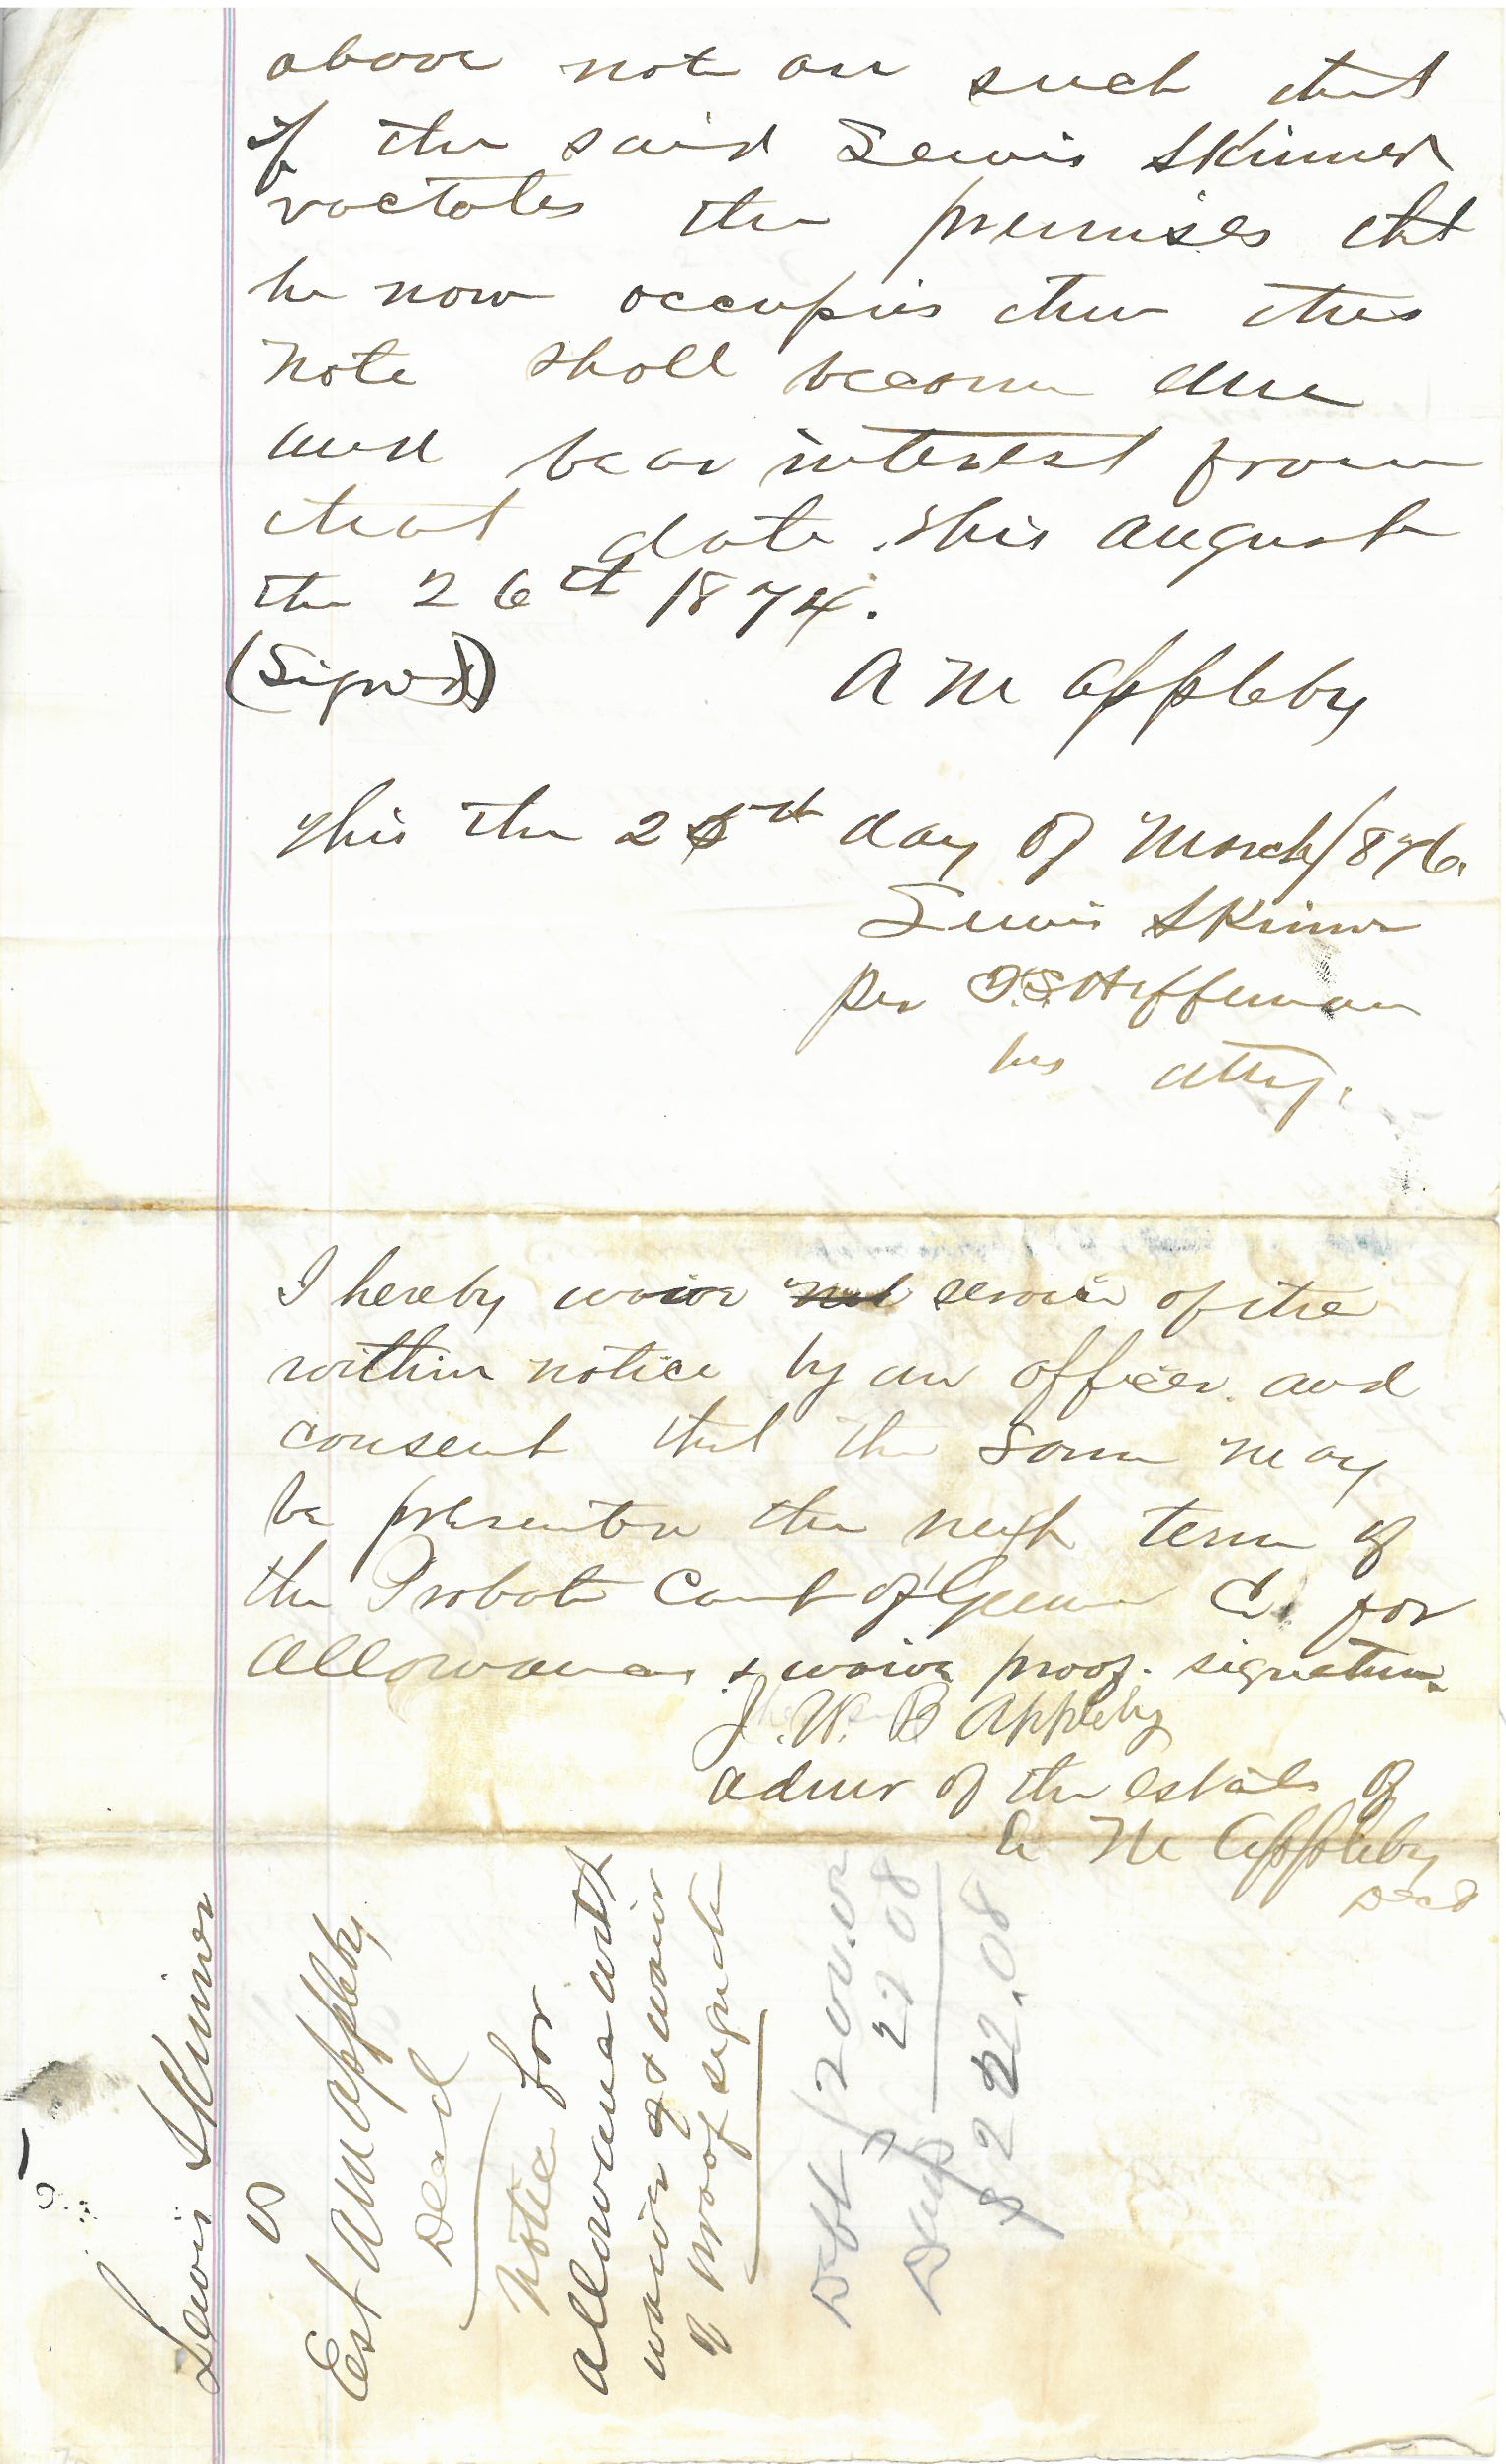 above note are such that
if the said Lewis Skinner
vactates the premises tht
he now occupies then this
note shall become due
and bear interest from
that date. This August
the 26th 1874.
(Signed) A M Appleby
This the 25th day of March 1876.
Lewis Skinner
per T.S. Heffernan
his atty.
I hereby waive not service of the
within notice by an officer and
consent that the same may
be presented the next term of
the Probate Court of Greene Co for
allowance & waive proof signature.
J. W. B Appleby
admr of the estate of
A M Appleby
Decd
Lewis Skinner
vs
Est A M Appleby
Decd
Notice for
allowance with
waiver of & waiver
of proof signatr
Debt $200.00
Dam 22 08
$222.08